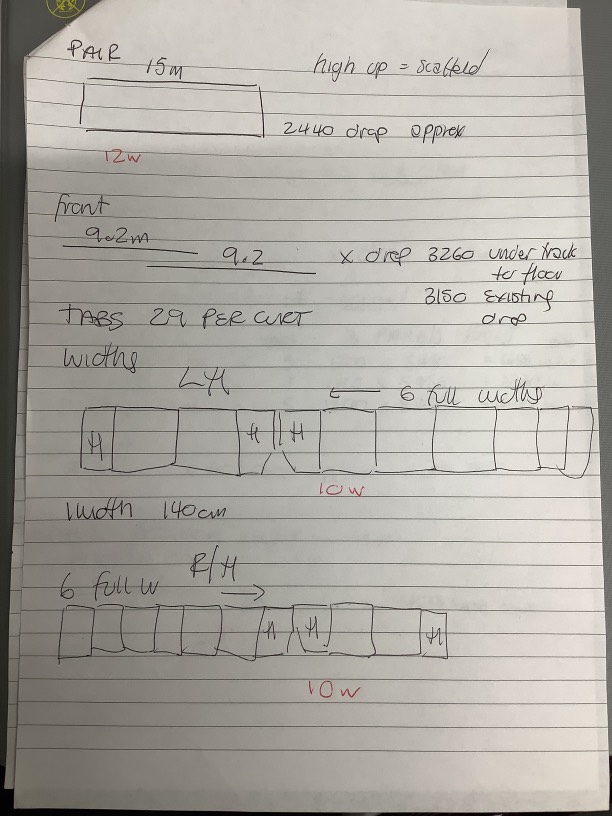 PAIR
15m
high up = scaffold
2440 drop approx
12w
front
9.2m
9.2 x drop 3260 under track
to floor
3150 existing
drop
TABS 29 PER CURT
Widths
LH ← 6 full widths
H H H
10w
1 width 140cm
R/H
6 full w →
H H H
10w